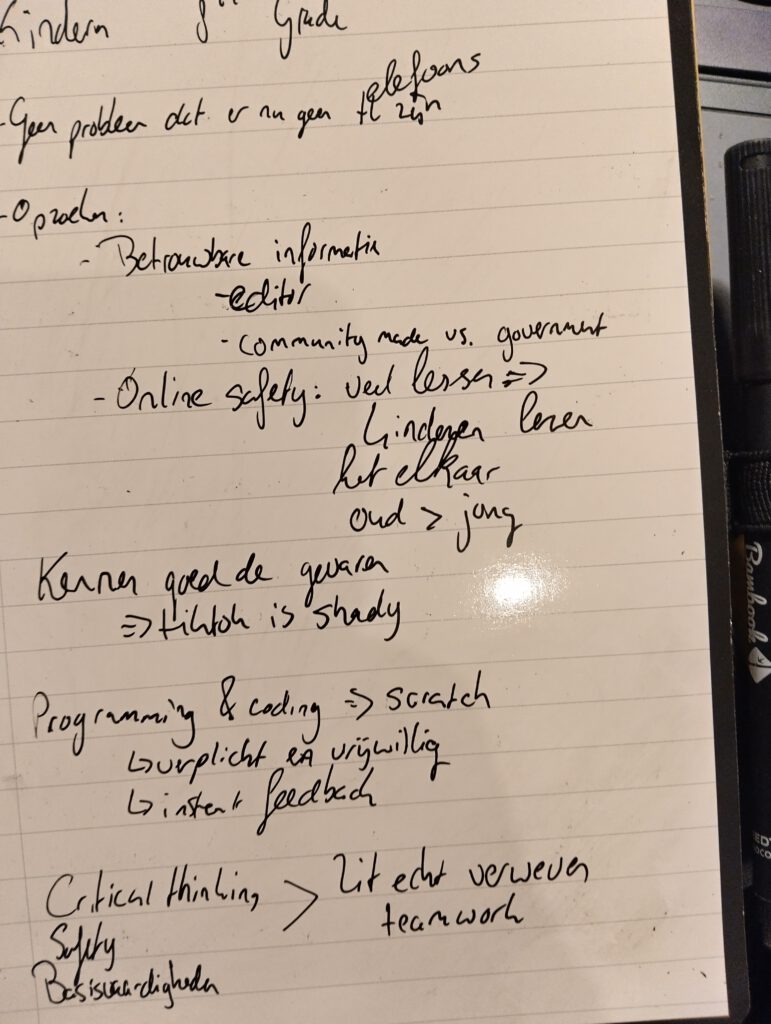 Kindern 8th Grade
- Geen probleem dat er nu geen telefoons zijn
- Opzoeken:
- Betrouwbare informatie
- editor
- community made vs. government
- Online safety: veel lessen =>
kinderen leren
het elkaar
oud > jong
Kennen goed de gevaren
=> tiktok is shady
Programming & coding => scratch
↳ verplicht en vrijwillig
↳ instant feedback
Critical thinking > Zit echt verweven
teamwork
Safety
Basisvaardigheden
Bambook